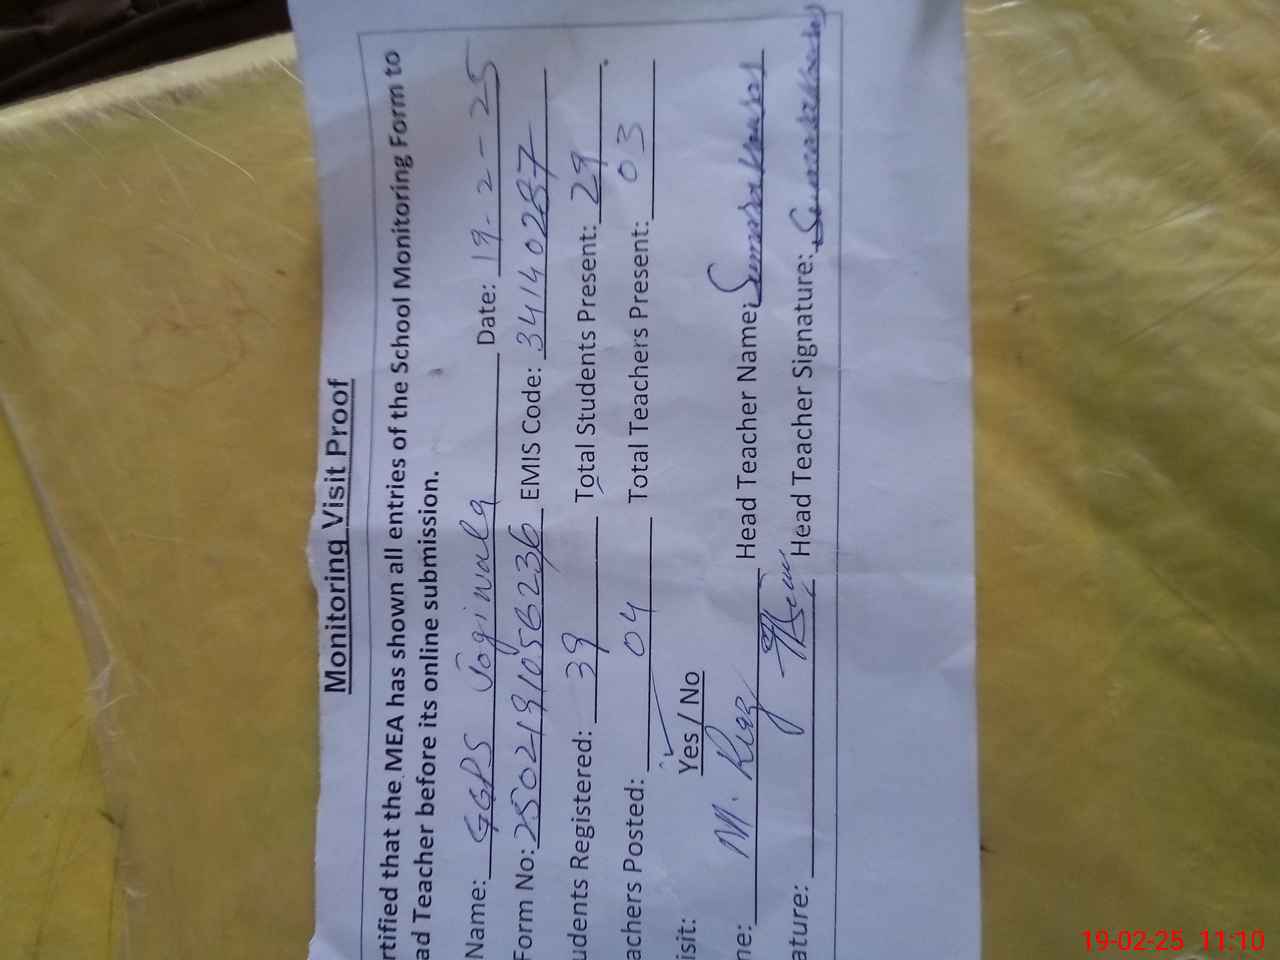 Monitoring Visit Proof
rtified that the MEA has shown all entries of the School Monitoring Form to
ad Teacher before its online submission.
Name: GGPS Jogiwala Date: 19-2-25
Form No: 2502191056236 EMIS Code: 34140287
udents Registered: 39 Total Students Present: 29
achers Posted: 04 Total Teachers Present: 03
isit: Yes / No
ne: M. Riaz Head Teacher Name:
ature: Head Teacher Signature:
19-02-25 11:10